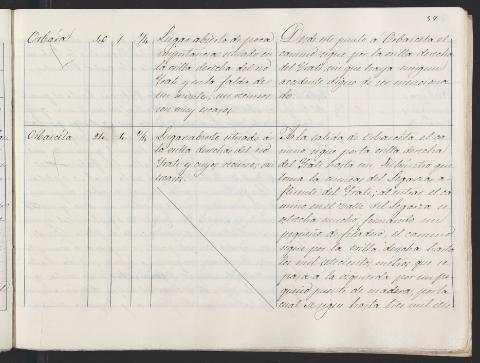 Orbára 46 1 1/4 Lugar abierto de poca
importancia situado en
la orilla derecha del rio
Irati y en la falda de
un monte; sus recursos
son muy escasos.
Desde este punto á Orbaiceta el
camino sigue por la orilla derecha
del Irati, sin que haya ningun
accidente digno de ser menciona-
do.
Orbaiceta 1
Lugar abierto situado á
la orilla derecha del rio
Irati y cuyos recursos son
escasos.
A la salida de Orbaiceta el ca-
mino sigue por la orilla derecha
del Irati hasta un que
toma la del Legarza a-
fluente del Irati; al entrar el ca-
mino en el valle del Legarza se
estrecha mucho, formando un
pequeño desfiladero, el camino
sigue por la orilla derecha hasta
los mil doscientos metros que se
pasa á la izquierda por un pe-
queño puente de madera, por la
cual sigue hasta tres mil